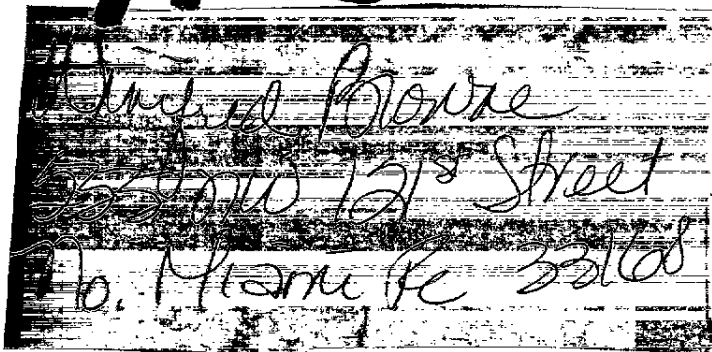 Winifred Browne
NW 121st Street
No. Miami Fl 33168